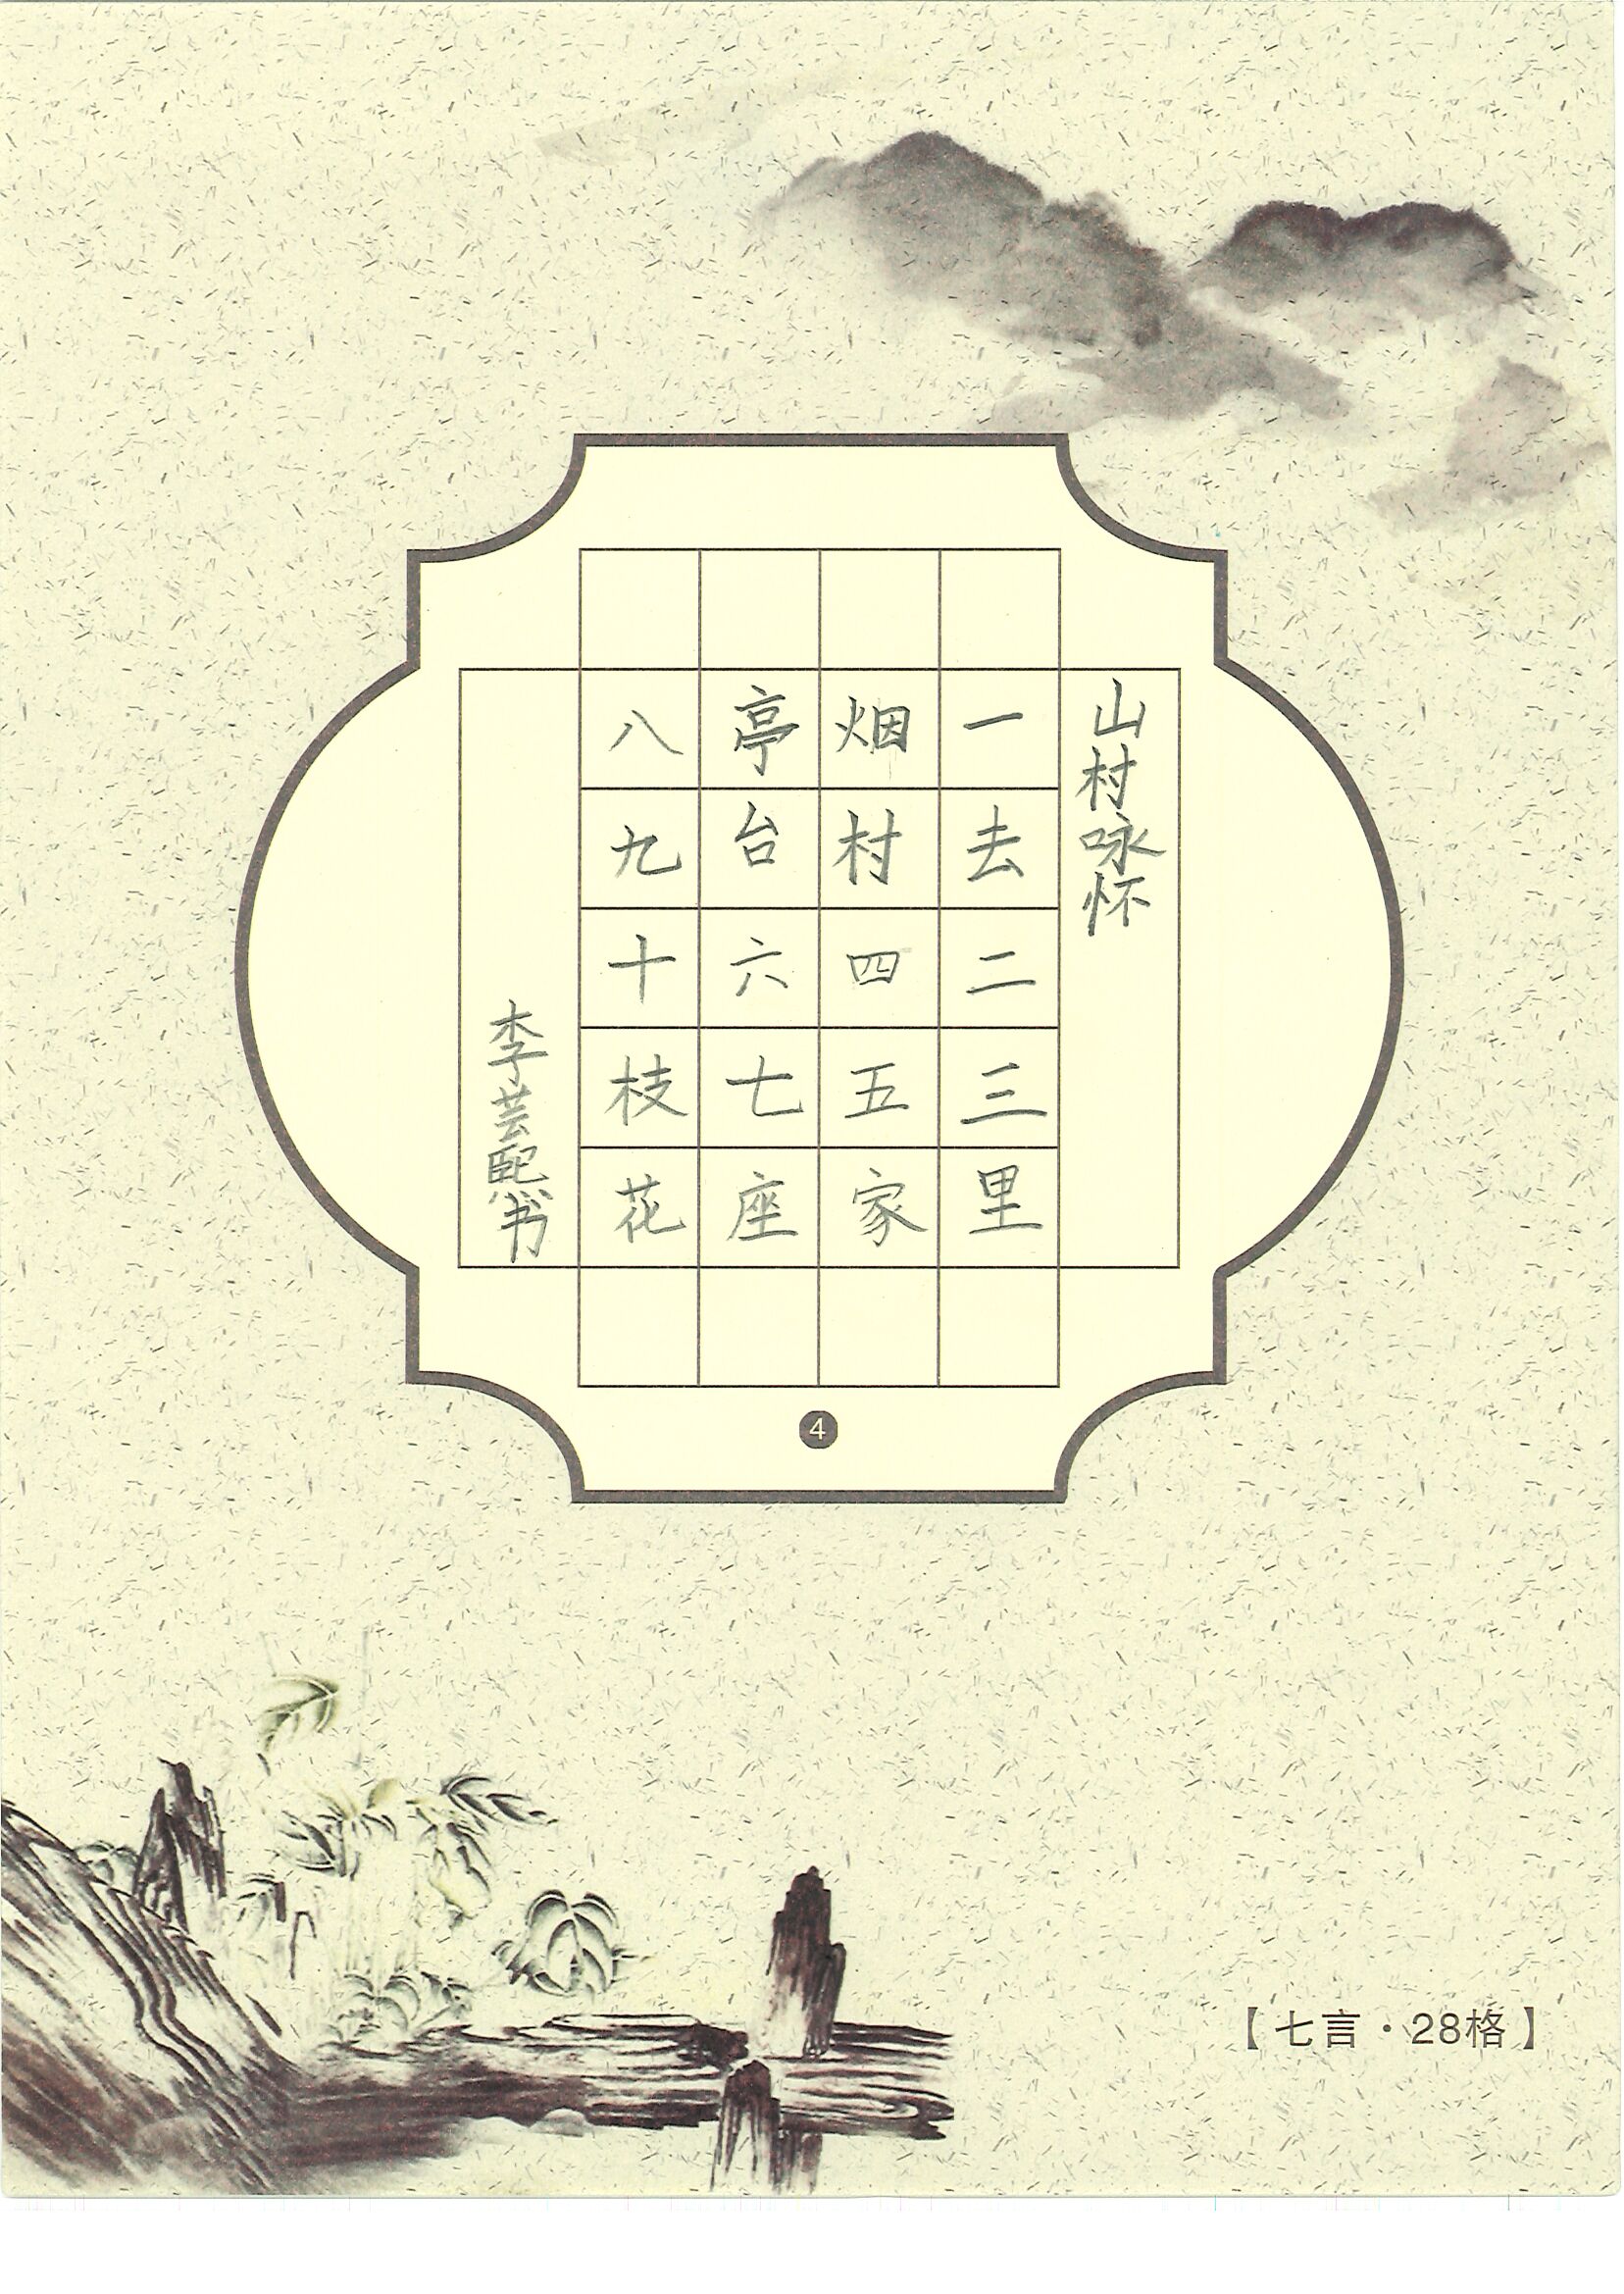 山村咏怀
一去二三里
烟村四五家
亭台六七座
八九十枝花
李芸熙书
4
【七言·28格】